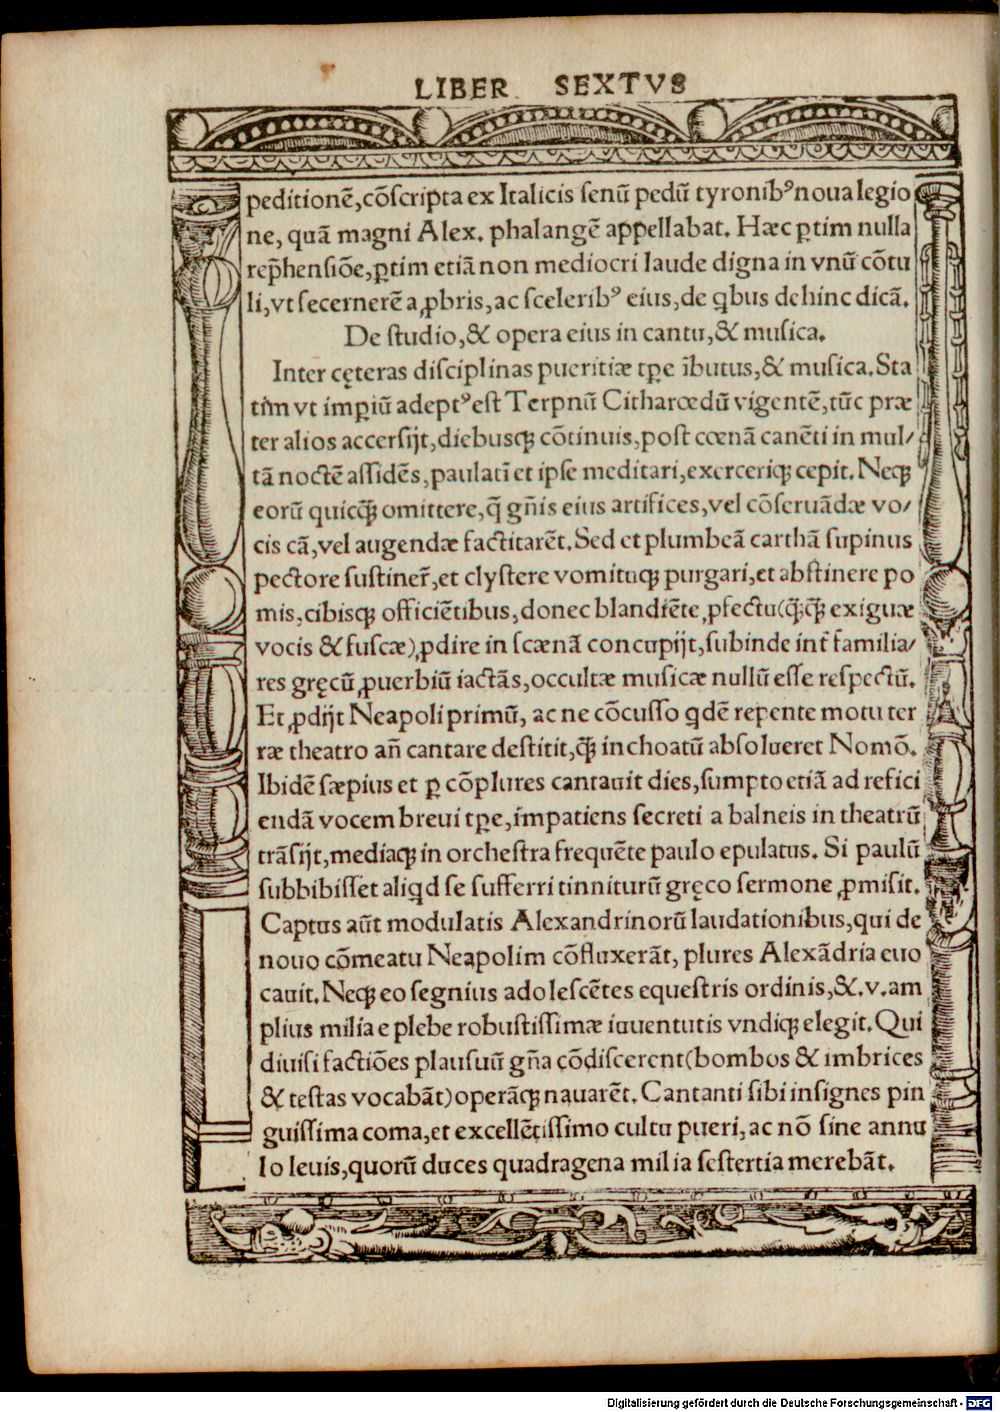 LIBER SEXTVS
peditionē,cōſcripta ex Italicis ſenū pedū tyronibꝰ noua legio
ne, quā magni Alex. phalangē appellabat. Hæc ꝑtim nulla
rep̄henſiōe,ꝑtim etiā non mediocri laude digna in vnū cōtu
li,vt ſecernerē a ꝓbris,ac ſceleribꝰ eius,de qbus dehinc dicā.
De ſtudio,& opera eius in cantu,& muſica.
Inter cęteras diſciplinas pueritiæ tꝑe ībutus,& muſica.Sta
tim vt imꝑiū adeptꝰ eſt Terpnū Citharœdū vigentē,tūc præ
ter alios accerſijt,diebusqꝫ cōtinuis,poſt cœnā canēti in mul/
tā noctē aſſidēs,paulatī et ipſe meditari,exerceriqꝫ cepit.Neqꝫ
eorū quicq̄ꝫ omittere,q̄ gn̄is eius artifices,vel cōſeruādæ vo/
cis cā,vel augendæ factitarēt.Sed et plumbeā carthā ſupinus
pectore ſuſtiner̄,et clyſtere vomituqꝫ purgari,et abſtinere po
mis,cibisqꝫ officiētibus,donec blandiēte ꝓfectu(q̄ꝫq̄ꝫ exiguæ
vocis & fuſcæ)ꝓdire in ſcænā concupijt,ſubinde int̄ familia/
res gręcū ꝓuerbiū iactās,occultæ muſicæ nullū eſſe reſpectū.
Et ꝓdijt Neapoli primū, ac ne cōcuſſo qdē repente motu ter
ræ theatro an̄ cantare deſtitit,q̄ꝫ inchoatū abſolueret Nomō.
Ibidē ſæpius et ꝑ cōplures cantauit dies,ſumpto etiā ad refici
endā vocem breui tꝑe,impatiens ſecreti a balneis in theatrū
trāſijt,mediaqꝫ in orcheſtra frequēte paulo epulatus. Si paulū
ſubbibiſſet aliqd ſe ſufferri tinniturū gręco ſermone ꝓmiſit.
Captus aūt modulatis Alexandrinorū laudationibus,qui de
nouo cōmeatu Neapolim cōfluxerāt, plures Alexādria euo
cauit.Neqꝫ eo ſegnius adoleſcētes equeſtris ordinis,&.v.am
plius milia e plebe robuſtiſſimæ iuuentutis vndiqꝫ elegit.Qui
diuiſi factiōes plauſuū gn̄a cōdiſcerent(bombos & imbrices
& teſtas vocabāt)operāqꝫ nauarēt. Cantanti ſibi inſignes pin
guiſſima coma,et excellētiſſimo cultu pueri,ac nō ſine annu
lo leuis,quorū duces quadragena milia ſeſtertia merebāt.
Digitalisierung gefördert durch die Deutsche Forschungsgemeinschaft - DFG